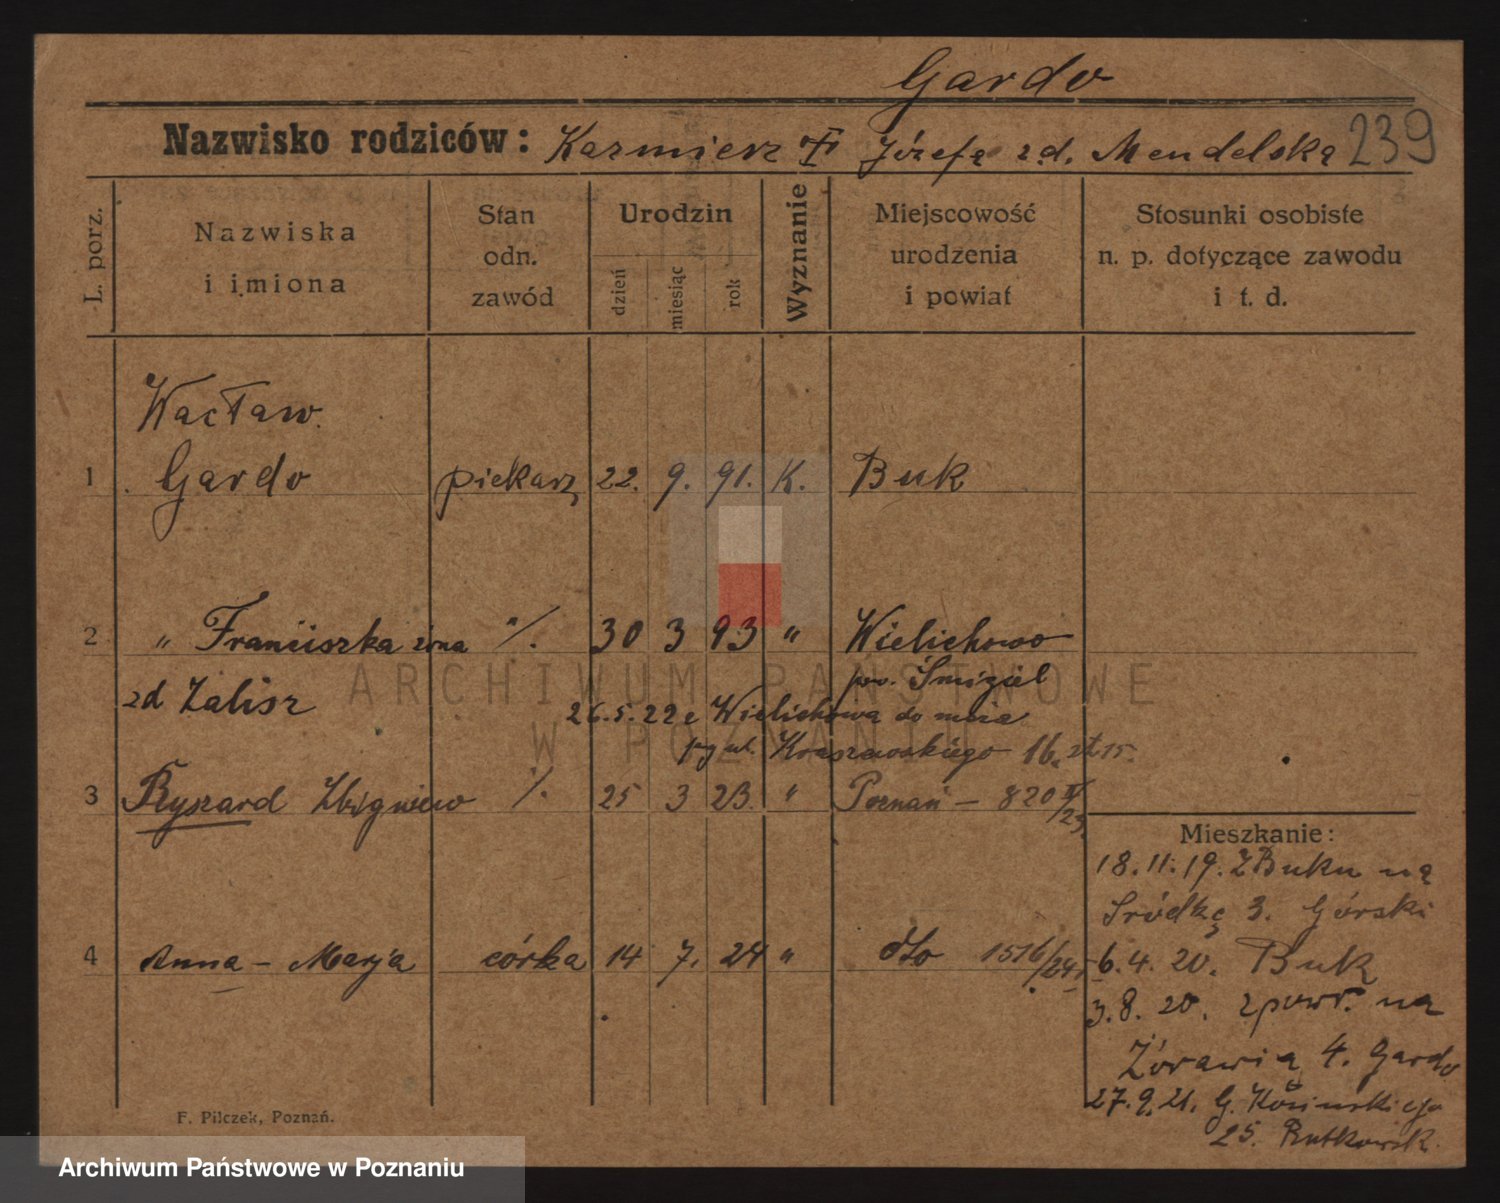 Gardo
Nazwisko rodziców: Kazmierz Józefa zd. Mendelska 239
L. porz.
Nazwiska
i imiona
Stan
odn.
zawód
Urodzin
dzień
miesiąc
rok
Wyznanie
Miejscowość
urodzenia
i powiat
Stosunki osobiste
n. p. dotyczące zawodu
i t. d.
Wacław
1 Gardo piekarz 22. 9. 91. K. Buk
2 " Franciszka żona % 30 3 93 " Wielichowo
pow. Śmigiel
zd Zalisz
26.5.22 z Wielichowa do męża
przy ul. Kraszewskiego 16.
3 Ryszard Zbigniew % 25 3 23. " Poznań - 820
4 Anna - Marja córka 14 7. 24 " dto 1516/24
Mieszkanie:
18.11.19. Z Buku na
Śródkę 3. Górski
6.4.20. Buk
3.8.20. zpowr. na
Żórawia 4. Gardo
27.9.21. G. Kosinskiego
25. Rutkowsk.
F. Pilczek, Poznań.
ARCHIWUM PAŃSTWOWE
W POZNANIU
Archiwum Państwowe w Poznaniu